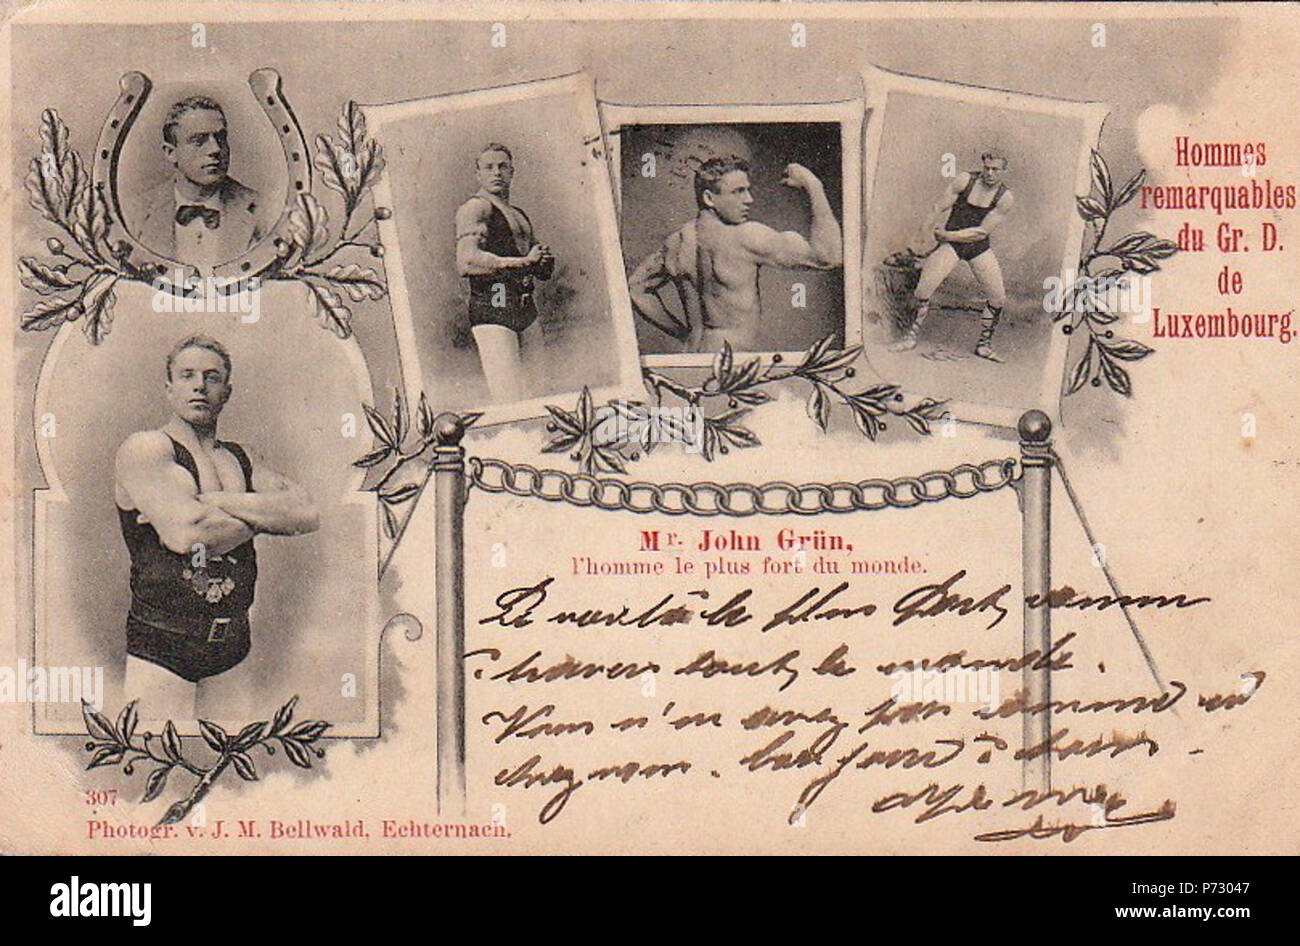 Hommes
remarquables
du Gr. D.
de
Luxembourg.
Mr. John Grün,
l'homme le plus fort du monde.
le plus fort, connu
travers tout le monde.
Vous n'en avez pas comme
chez vous.
307
Photogr. v. J. M. Bellwald, Echternach.
alamy
Image ID: P73047
www.alamy.com